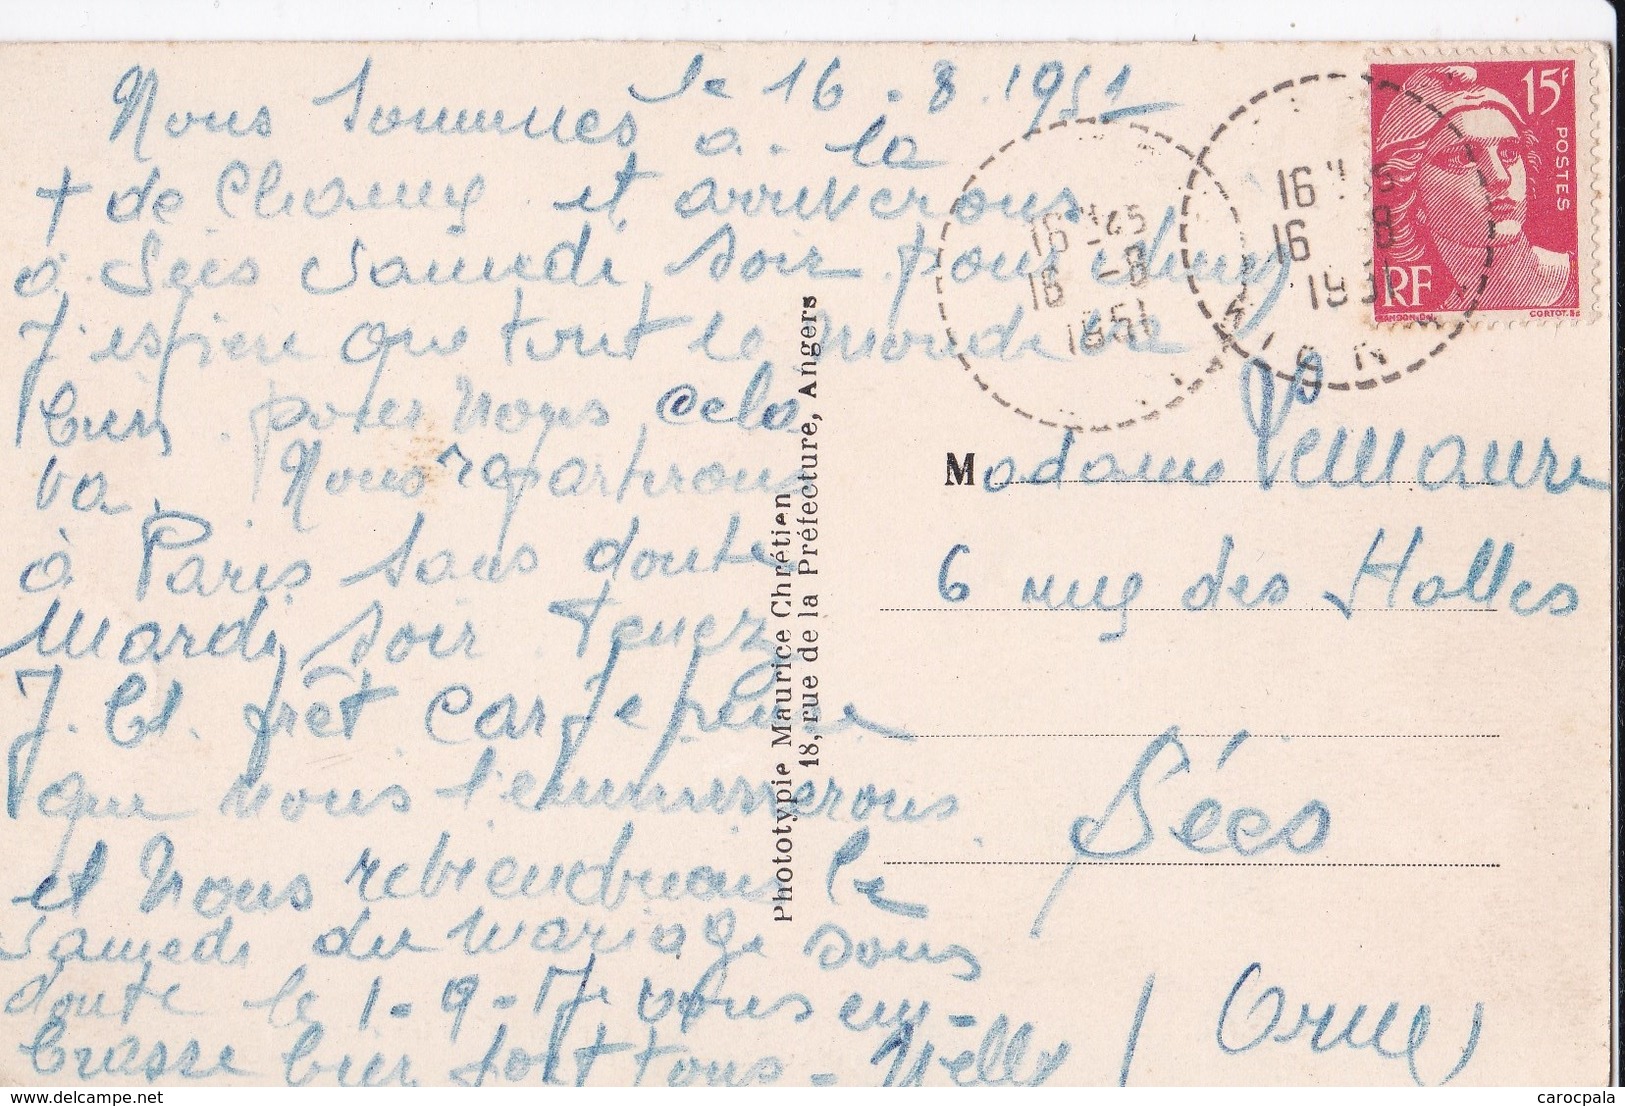 le 16.8.1951
Nous sommes à la
+ de Chamy et arriverons
à Sées Samedi soir pour diner
J'espère que tout le monde va
bien pour nous cela
va. Nous repartirons
à Paris sans doute
Mardi soir Tenez
J. Cl. prêt car je pense
que nous l'emmènerons
et nous reviendrons le
samedi du mariage sans
doute le 1-9-. Je vous em-
brasse bien fort tous - Nelly
Phototypie Maurice Chrétien
18, rue de la Préfecture, Angers
16 16
16 -8
1951
16
16 8
1951
15F
POSTES
RF
Madame Lemaure
6 rue des Halles
Sées
(Orne)
carocpala